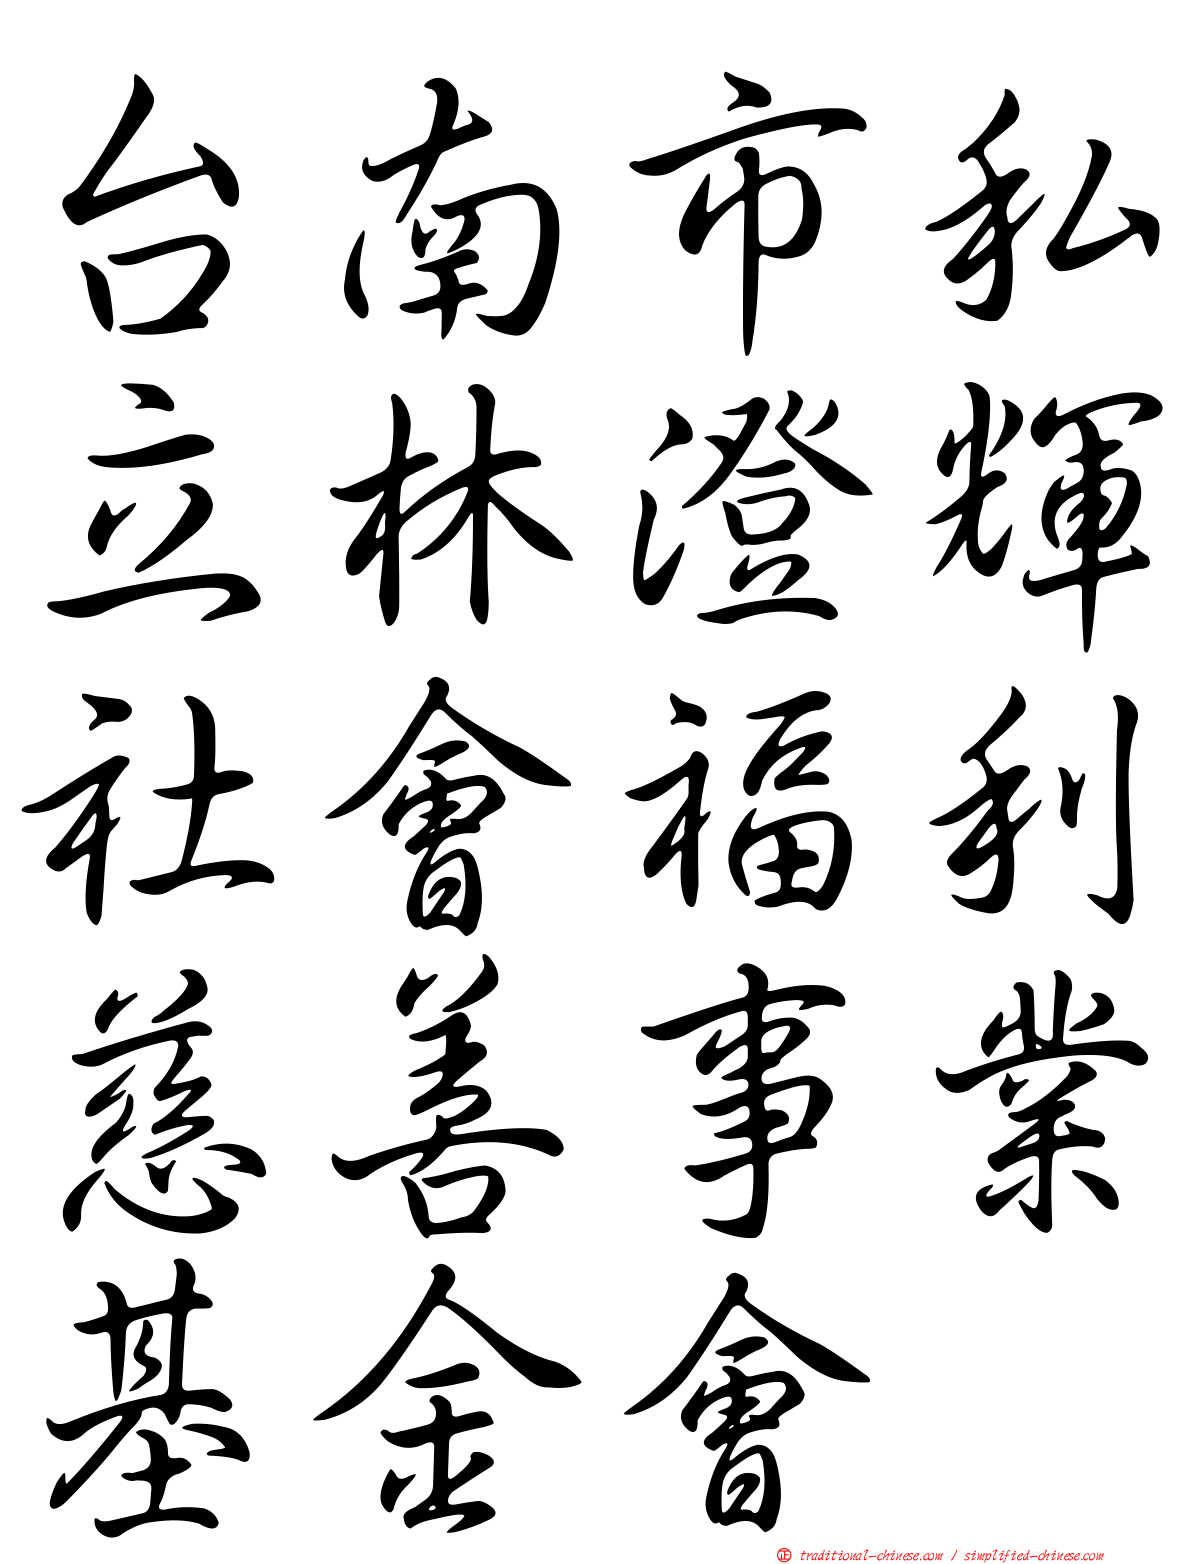 台南市私
立林澄輝
社會福利
慈善事業
基金會
正 traditional-chinese.com / simplified-chinese.com